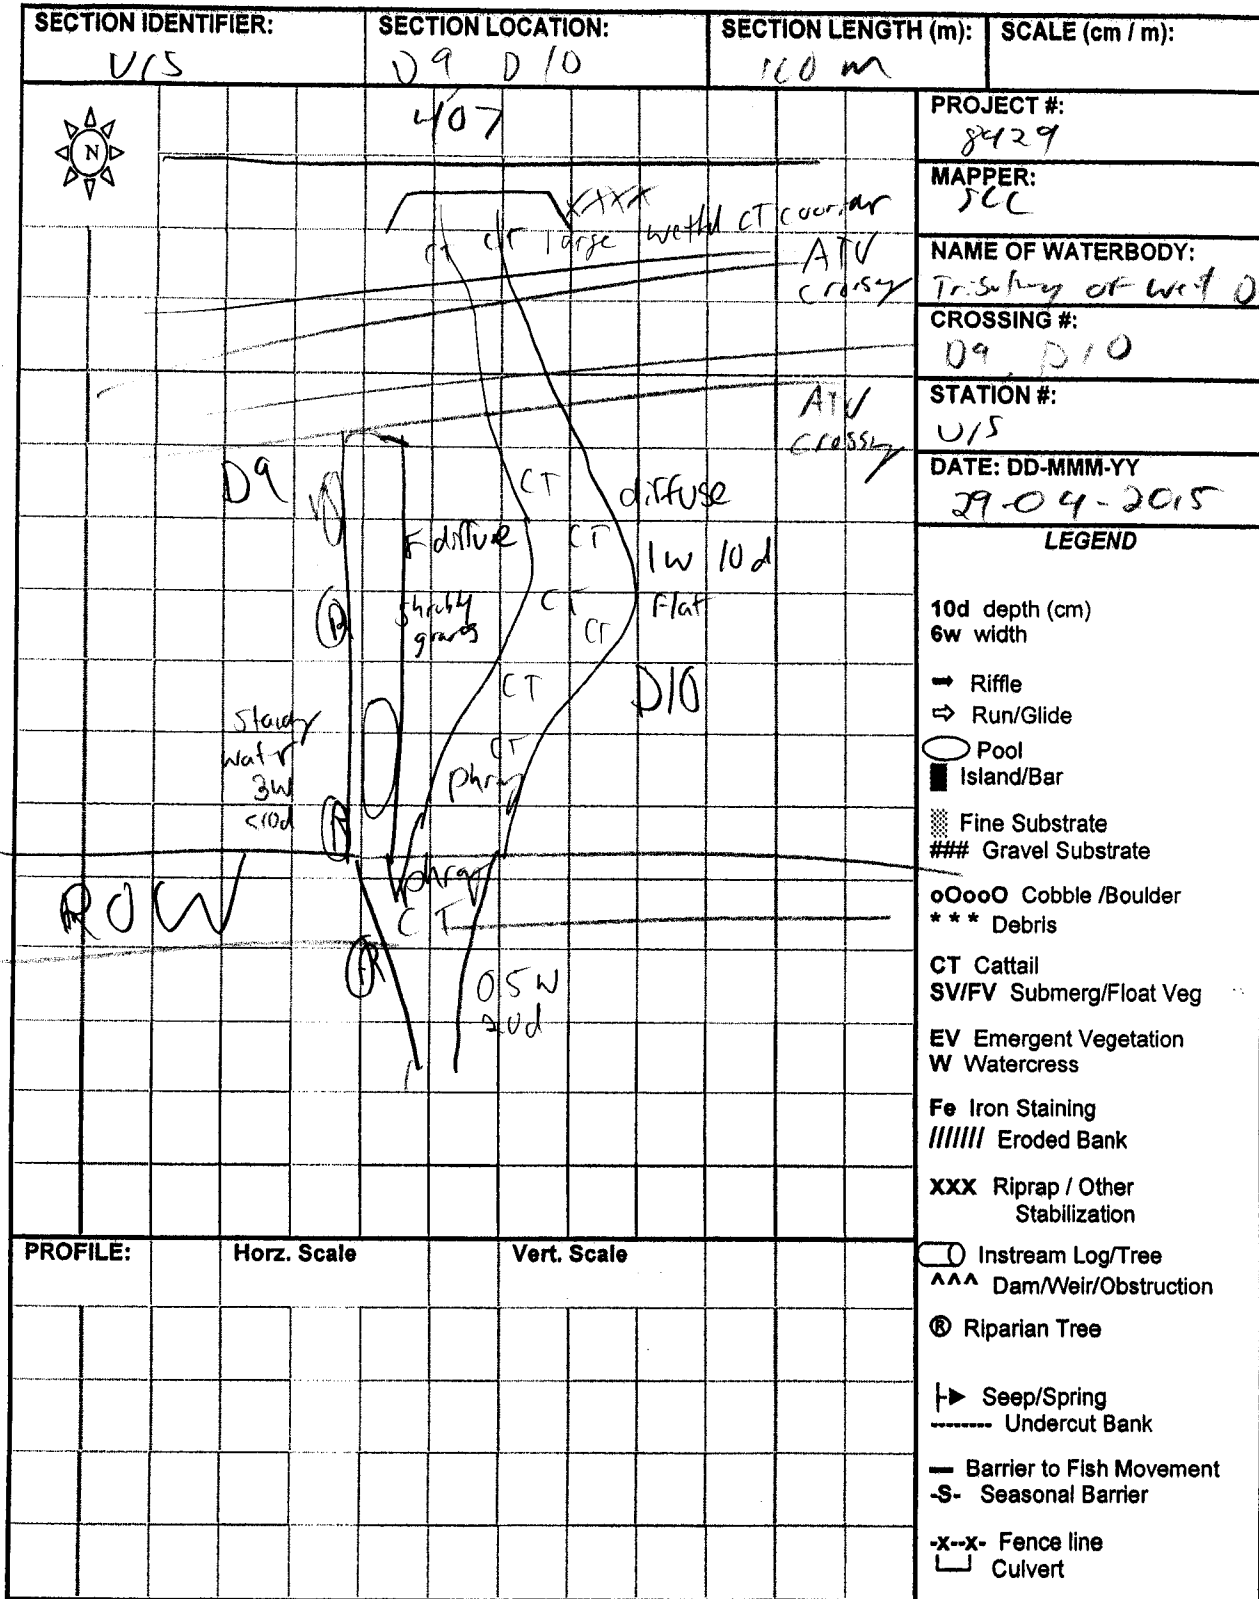 SECTION IDENTIFIER:
U/S
SECTION LOCATION:
D9 D10
SECTION LENGTH (m):
160 m
SCALE (cm / m):
N
407
XXXX
CT CT large CT
ATV
crossing
ATV
crossing
D9
CT diffuse
diffuse CT 1w 10d
shrubby CT flat
CT
CT D10
water
3w
<10d
CT
phrag
R
R
phrag
ROW
CT
R
0.5w
20d
PROJECT #:
8429
MAPPER:
NAME OF WATERBODY:
of West D
CROSSING #:
D9, D10
STATION #:
U/S
DATE: DD-MMM-YY
29-04-2015
LEGEND
10d depth (cm)
6w width
Riffle
Run/Glide
Pool
Island/Bar
Fine Substrate
### Gravel Substrate
oOooO Cobble /Boulder
* * * Debris
CT Cattail
SV/FV Submerg/Float Veg
EV Emergent Vegetation
W Watercress
Fe Iron Staining
/////// Eroded Bank
XXX Riprap / Other
Stabilization
Instream Log/Tree
^^^ Dam/Weir/Obstruction
® Riparian Tree
Seep/Spring
-------- Undercut Bank
Barrier to Fish Movement
-S- Seasonal Barrier
-x--x- Fence line
Culvert
PROFILE:
Horz. Scale
Vert. Scale